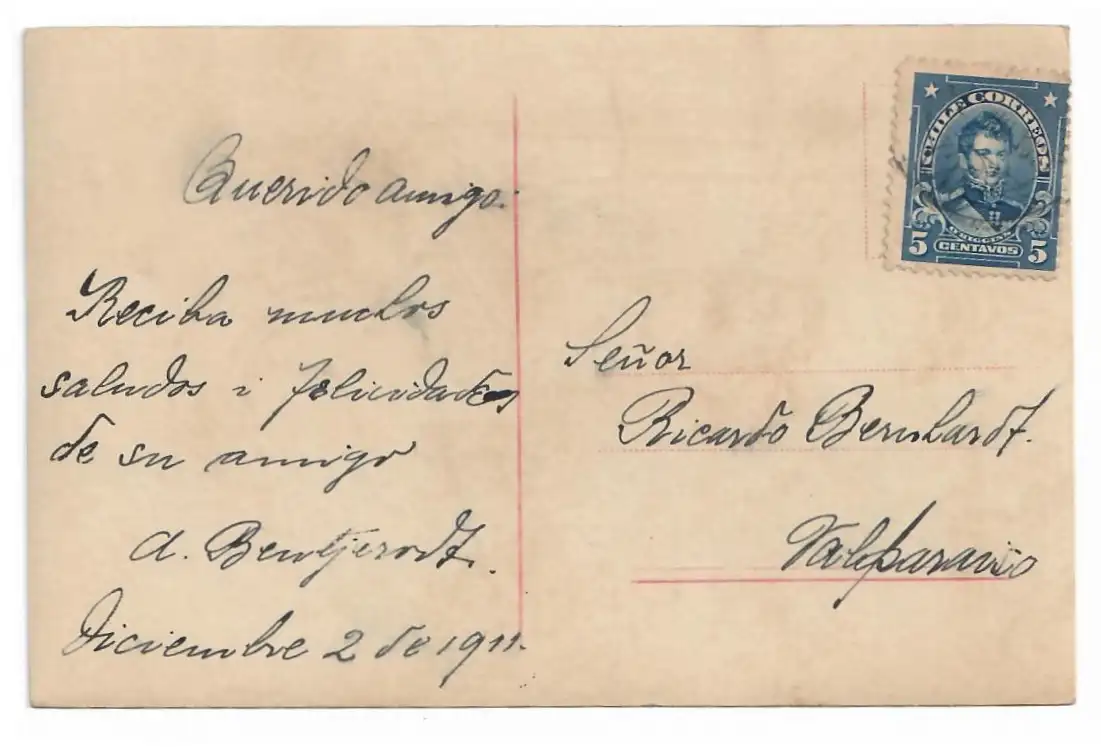 Querido amigo.
Reciba muchos
saludos i felicidades
de su amigo
A. Bentjerodt.
Diciembre 2 de 1911.
CHILE CORREOS
O'HIGGINS
5 CENTAVOS 5
Señor
Ricardo Bernhardt.
Valparaiso